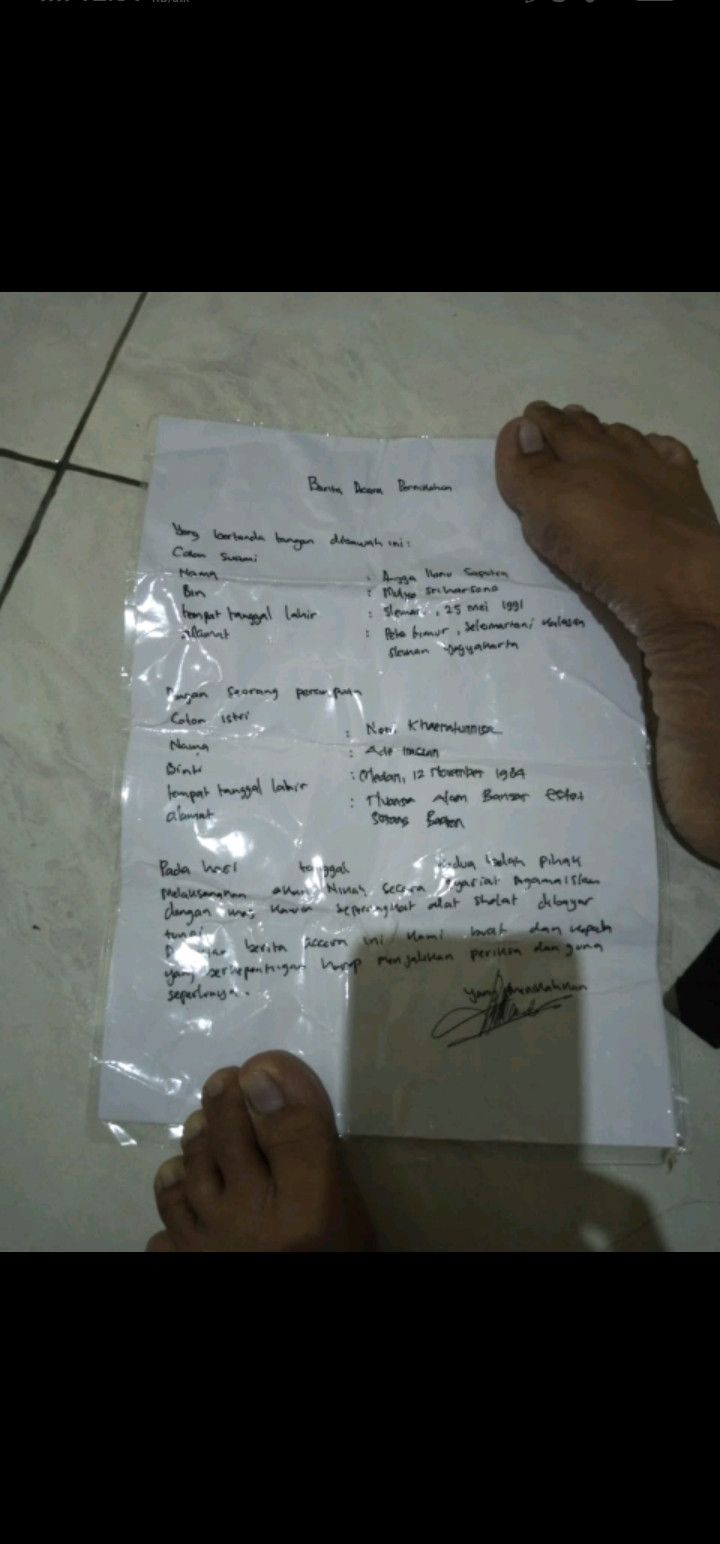 Berita Acara Pernikahan
Yang bertanda tangan dibawah ini:
Calon Suami
Nama : Angga Ibnu Saputra
Bin : Mulyo Sri harsono
tempat tanggal lahir : Sleman, 25 mei 1991
alamat : timur, Selomartani Kalasan
Sleman Yogyakarta
Dengan Seorang perempuan
Calon Istri
Nama : Khaeratunnisa
Binti : Ade
tempat tanggal lahir : Medan, 12 November 1984
alamat : Alam Banser
Serang Banten
Pada hari tanggal kedua belah pihak
melaksanakan akad Nikah secara Syariat Agama islam
dengan mas kawin seperangkat alat sholat dibayar
tunai.
berita accara ini kami buat dan kepada
yang berkepentingan harap menjadikan periksa dan guna
seperlunya.
yang menikahkan